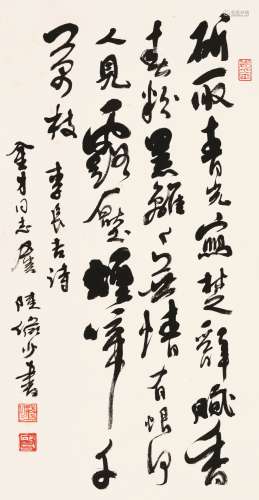 斫取青光寫楚辭膩香
春粉黑離離無情有恨何
人見露壓煙啼千
萬枝 李長吉詩
金才同志屬 陸儼少書